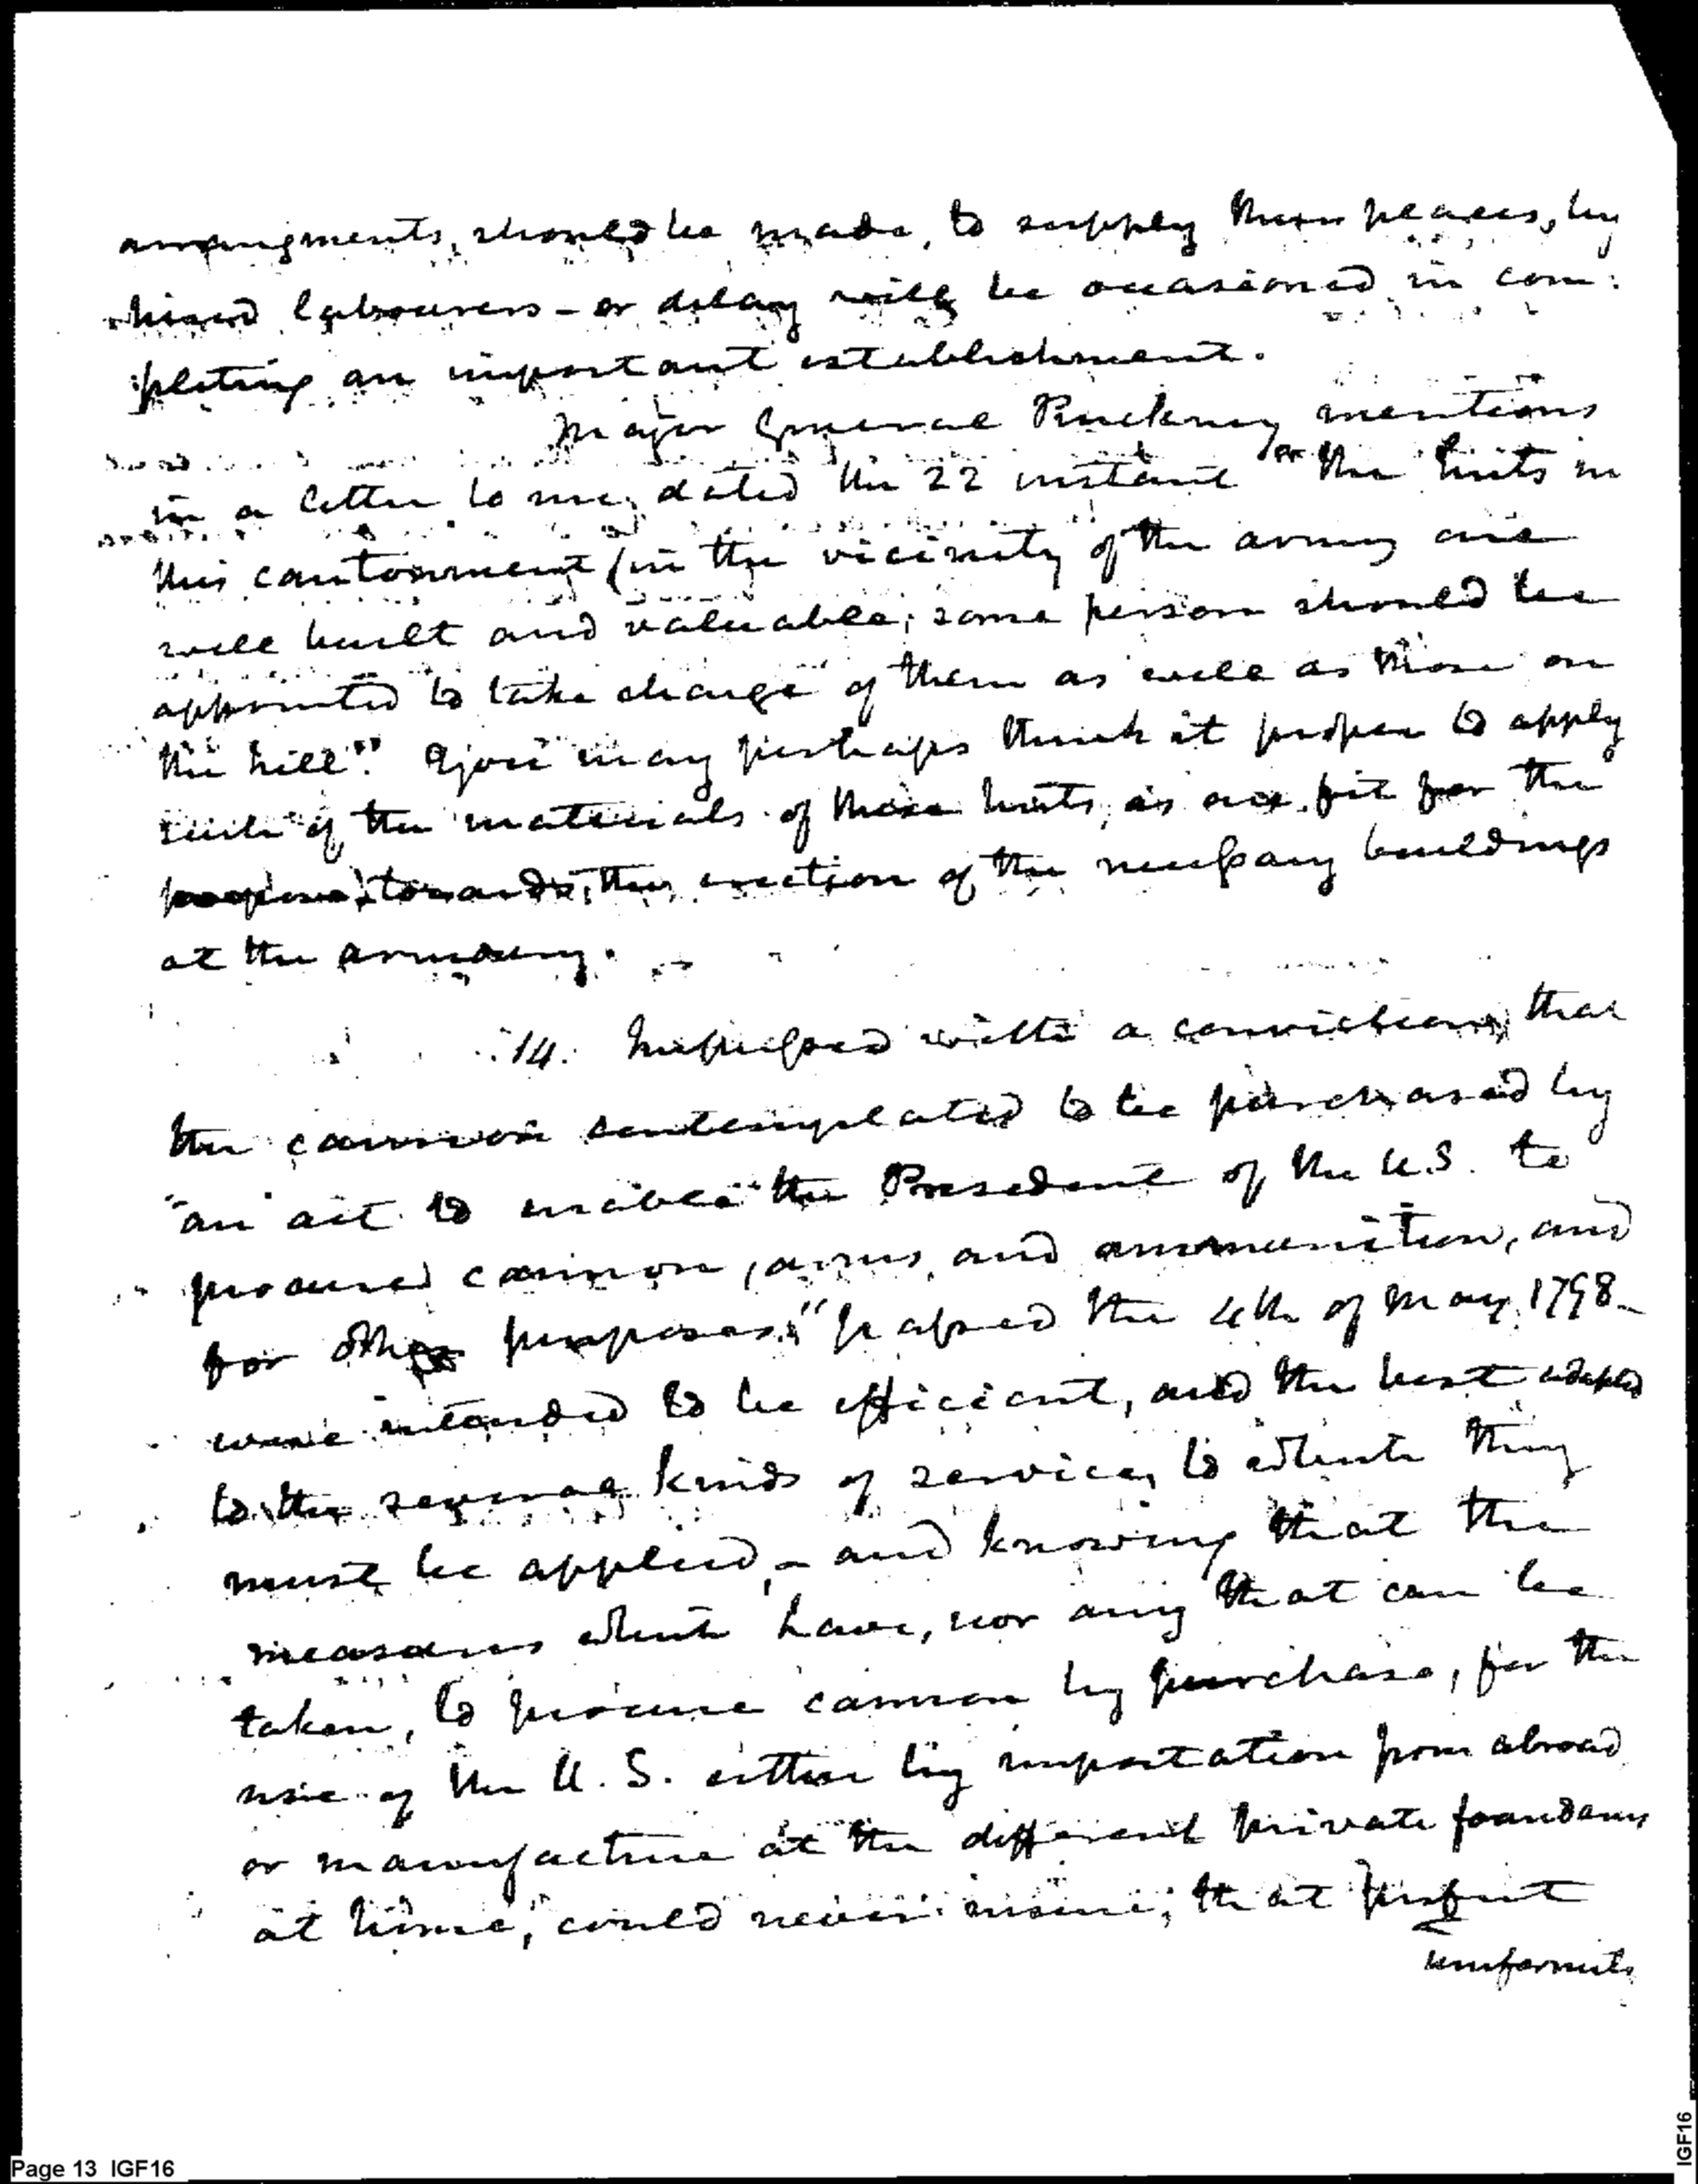 arrangments, should be made, to supply their places, by
hired labourers - or delay will be occasioned in com:
:pleting an important establishment.
Major General Pinckney mentions
in a letter to me, dated the 22 instant "the huts in
this cantonment (in the vicinity of the army are
well built and valuable; some person should be
appointed to take charge of them as well as those on
the hill." You may perhaps think it proper to apply
such of the materials of these huts, as are fit for the
purpose, towards, the erection of the necessary buildings
at the armoury.
14. Impressed with a conviction, that
the cannon contemplated to be purchased by
"an act to enable the President of the U.S. to
procure cannon, arms, and ammunition, and
for other purposes," passed the 4th of May, 1798-
were intended to be efficient, and the best adapted
to the several kinds of service, to which they
must be applied, - and knowing that the
measures which have, nor any that can be
taken, to procure cannon by purchase, for the
use of the U.S. either by importation from abroad
or manufacture at the different private founderies
at home, could never insure, that perfect
uniformity
Page 13 IGF16
IGF16